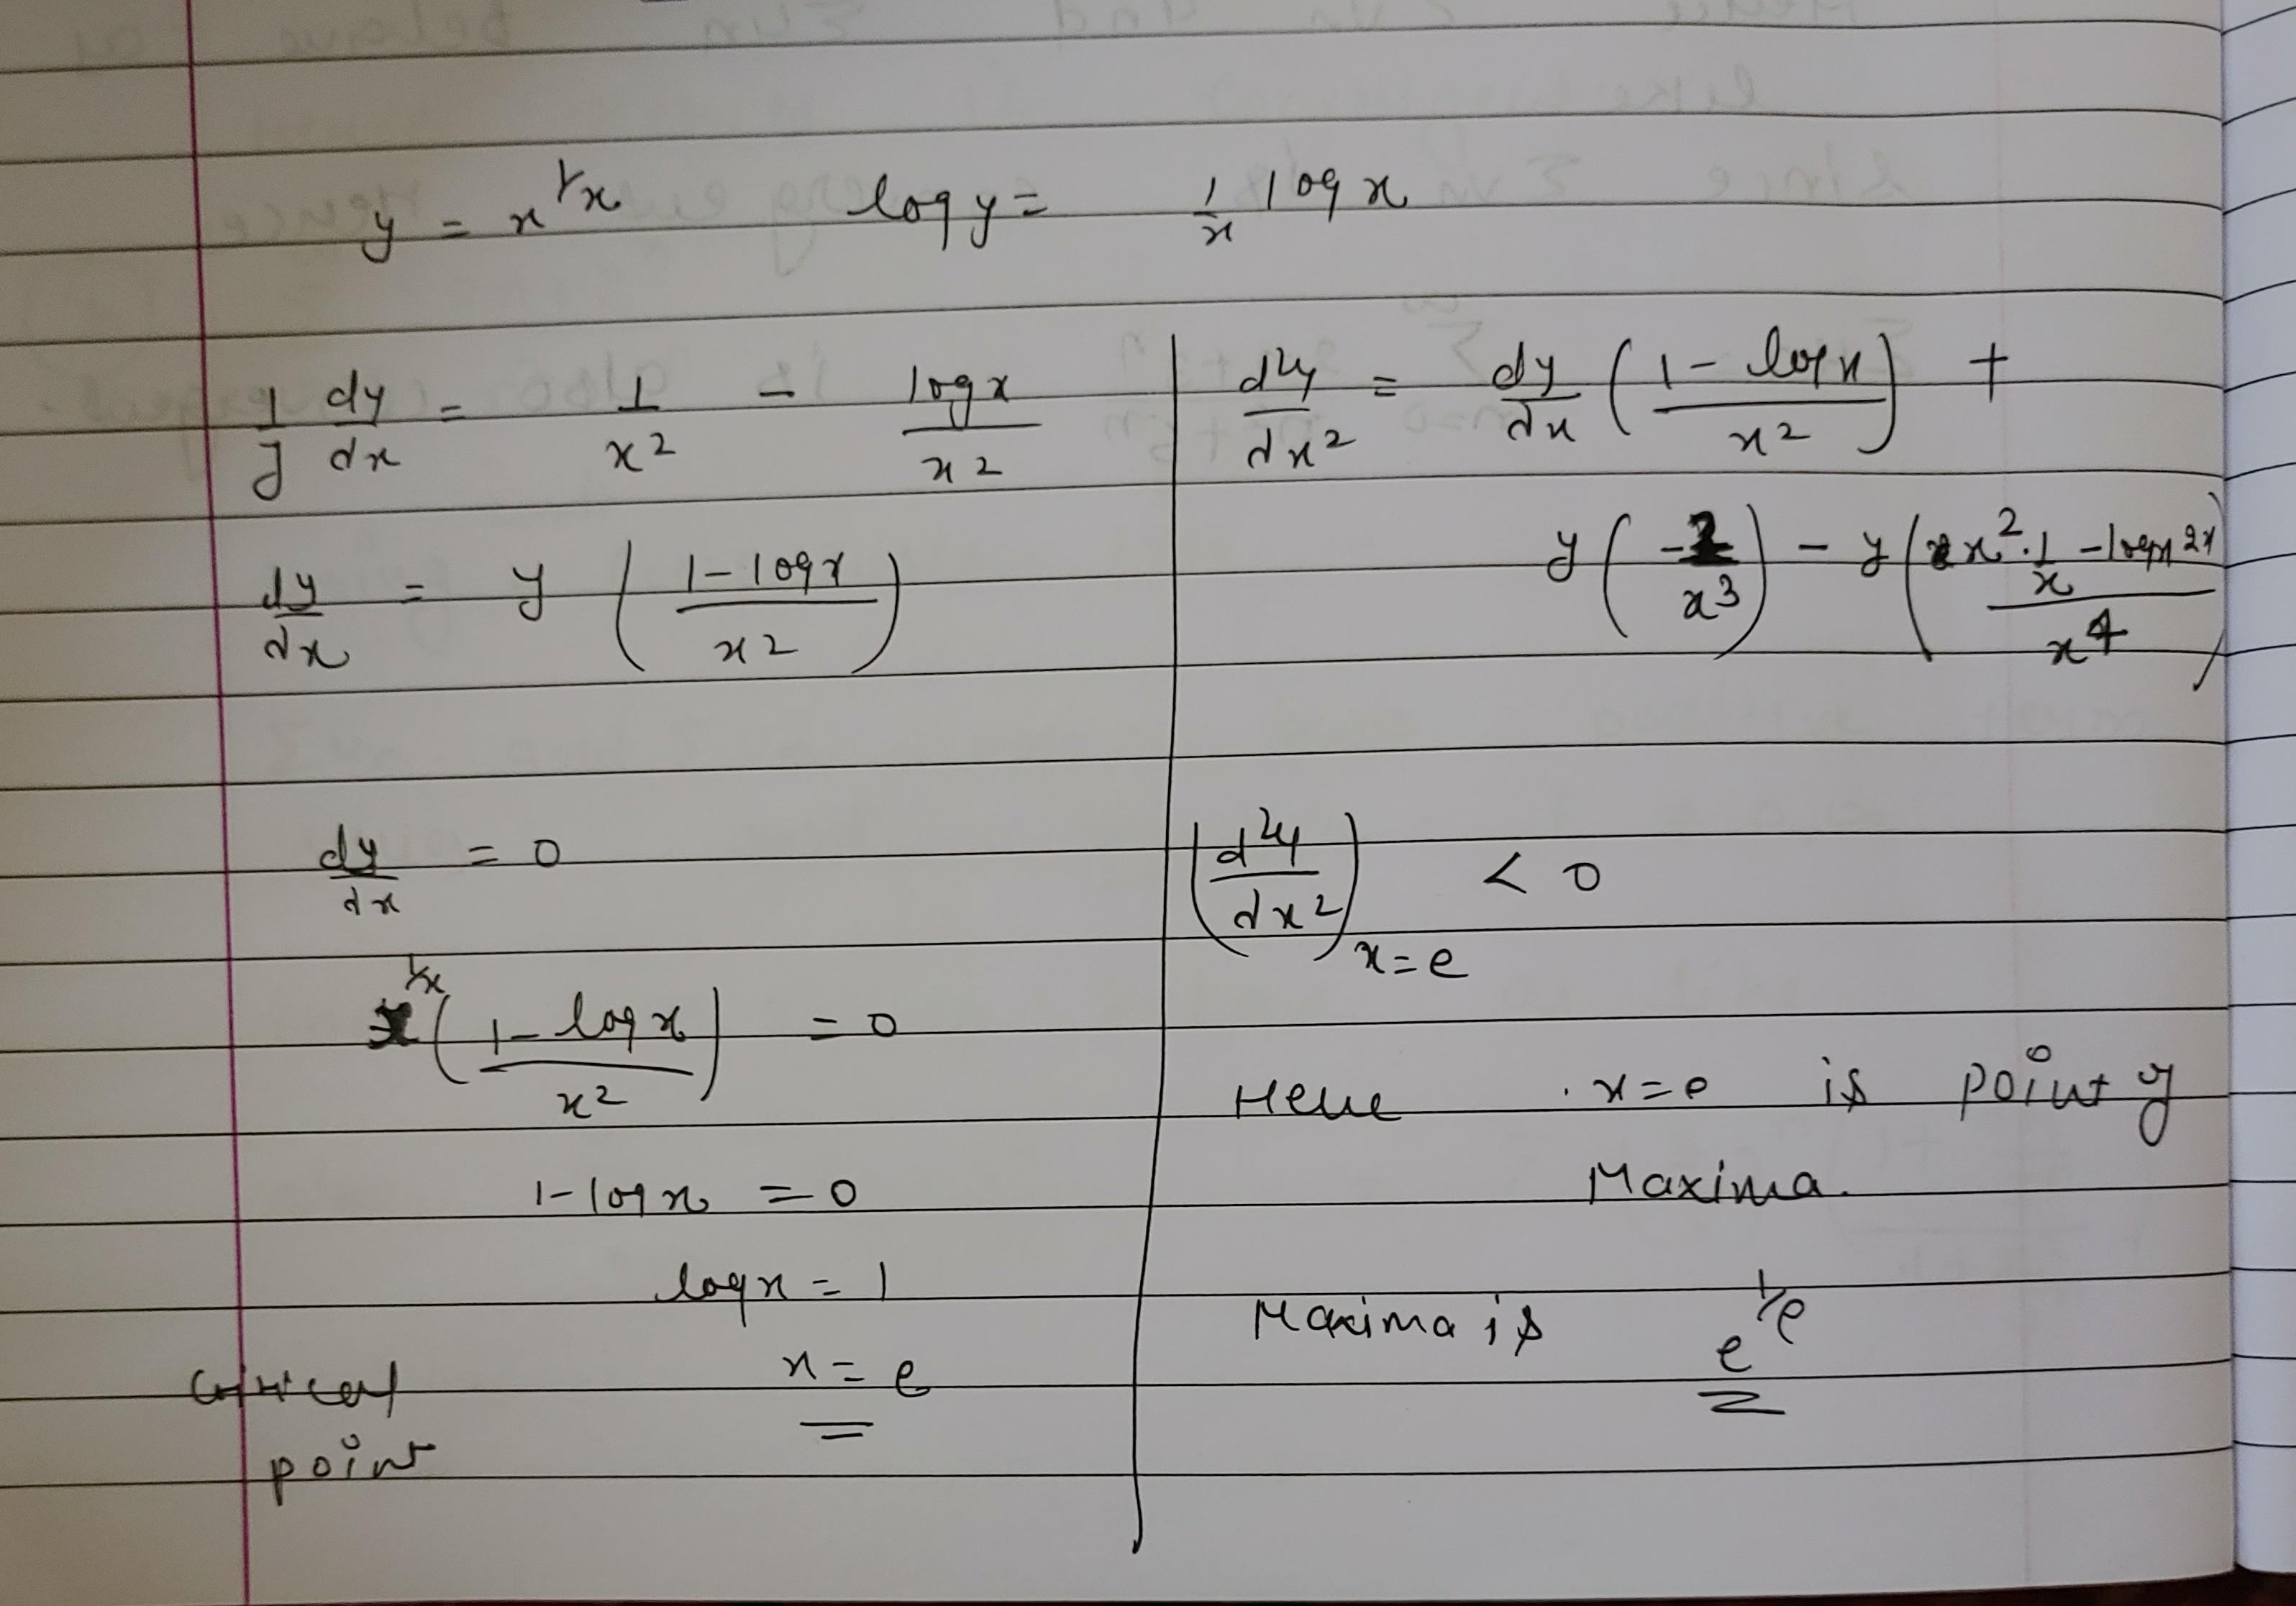 y = x^{1/x} log y = 1/x log x
1/y dy/dx = 1/x2 - log x/x2
dy/dx = y (1 - log x/x2)
dy/dx = 0
x^{1/x} (1 - log x/x2) = 0
1 - log x = 0
log x = 1
critical x = e
point
d2y/dx2 = dy/dx (1 - log x/x2) +
y (-2/x3) - y (x2 . 1/x - log x 2x/x4)
(d2y/dx2) x=e < 0
Hence x = e is point of
Maxima.
Maxima is e^{1/e}